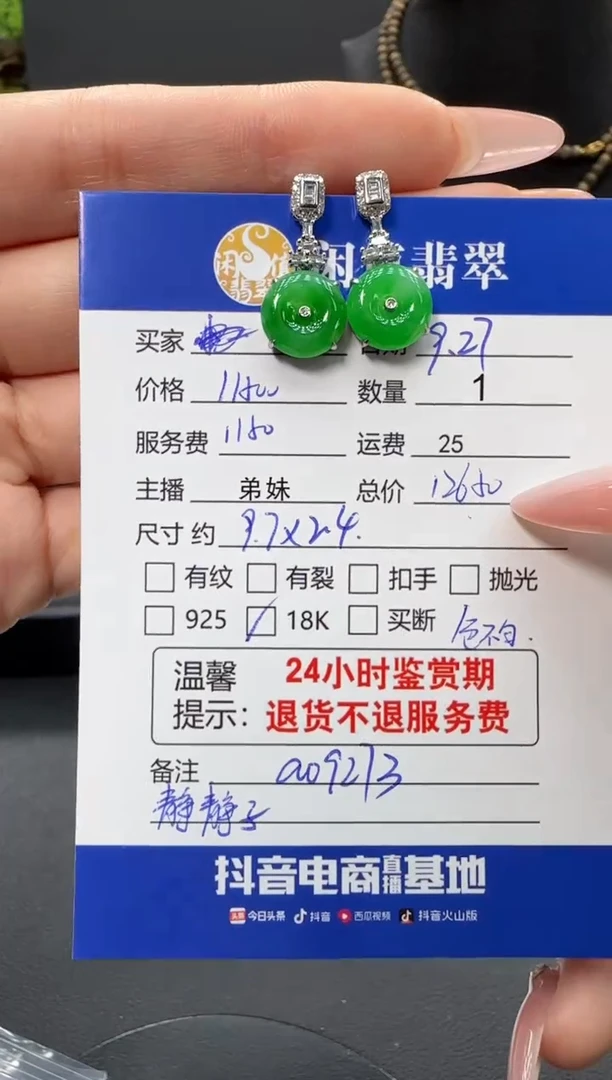 闲 翡翠
买家 日期 9.27
价格 11500 数量 1
服务费 1150 运费 25
主播 弟妹 总价 12650
尺寸 约 9.7×2.4
有纹 有裂 扣手 抛光
925 18K 买断 色不匀.
温馨 24小时鉴赏期
提示: 退货不退服务费
备注 a09273
静静子
抖音电商直播基地
头条 今日头条 抖音 西瓜视频 抖音火山版